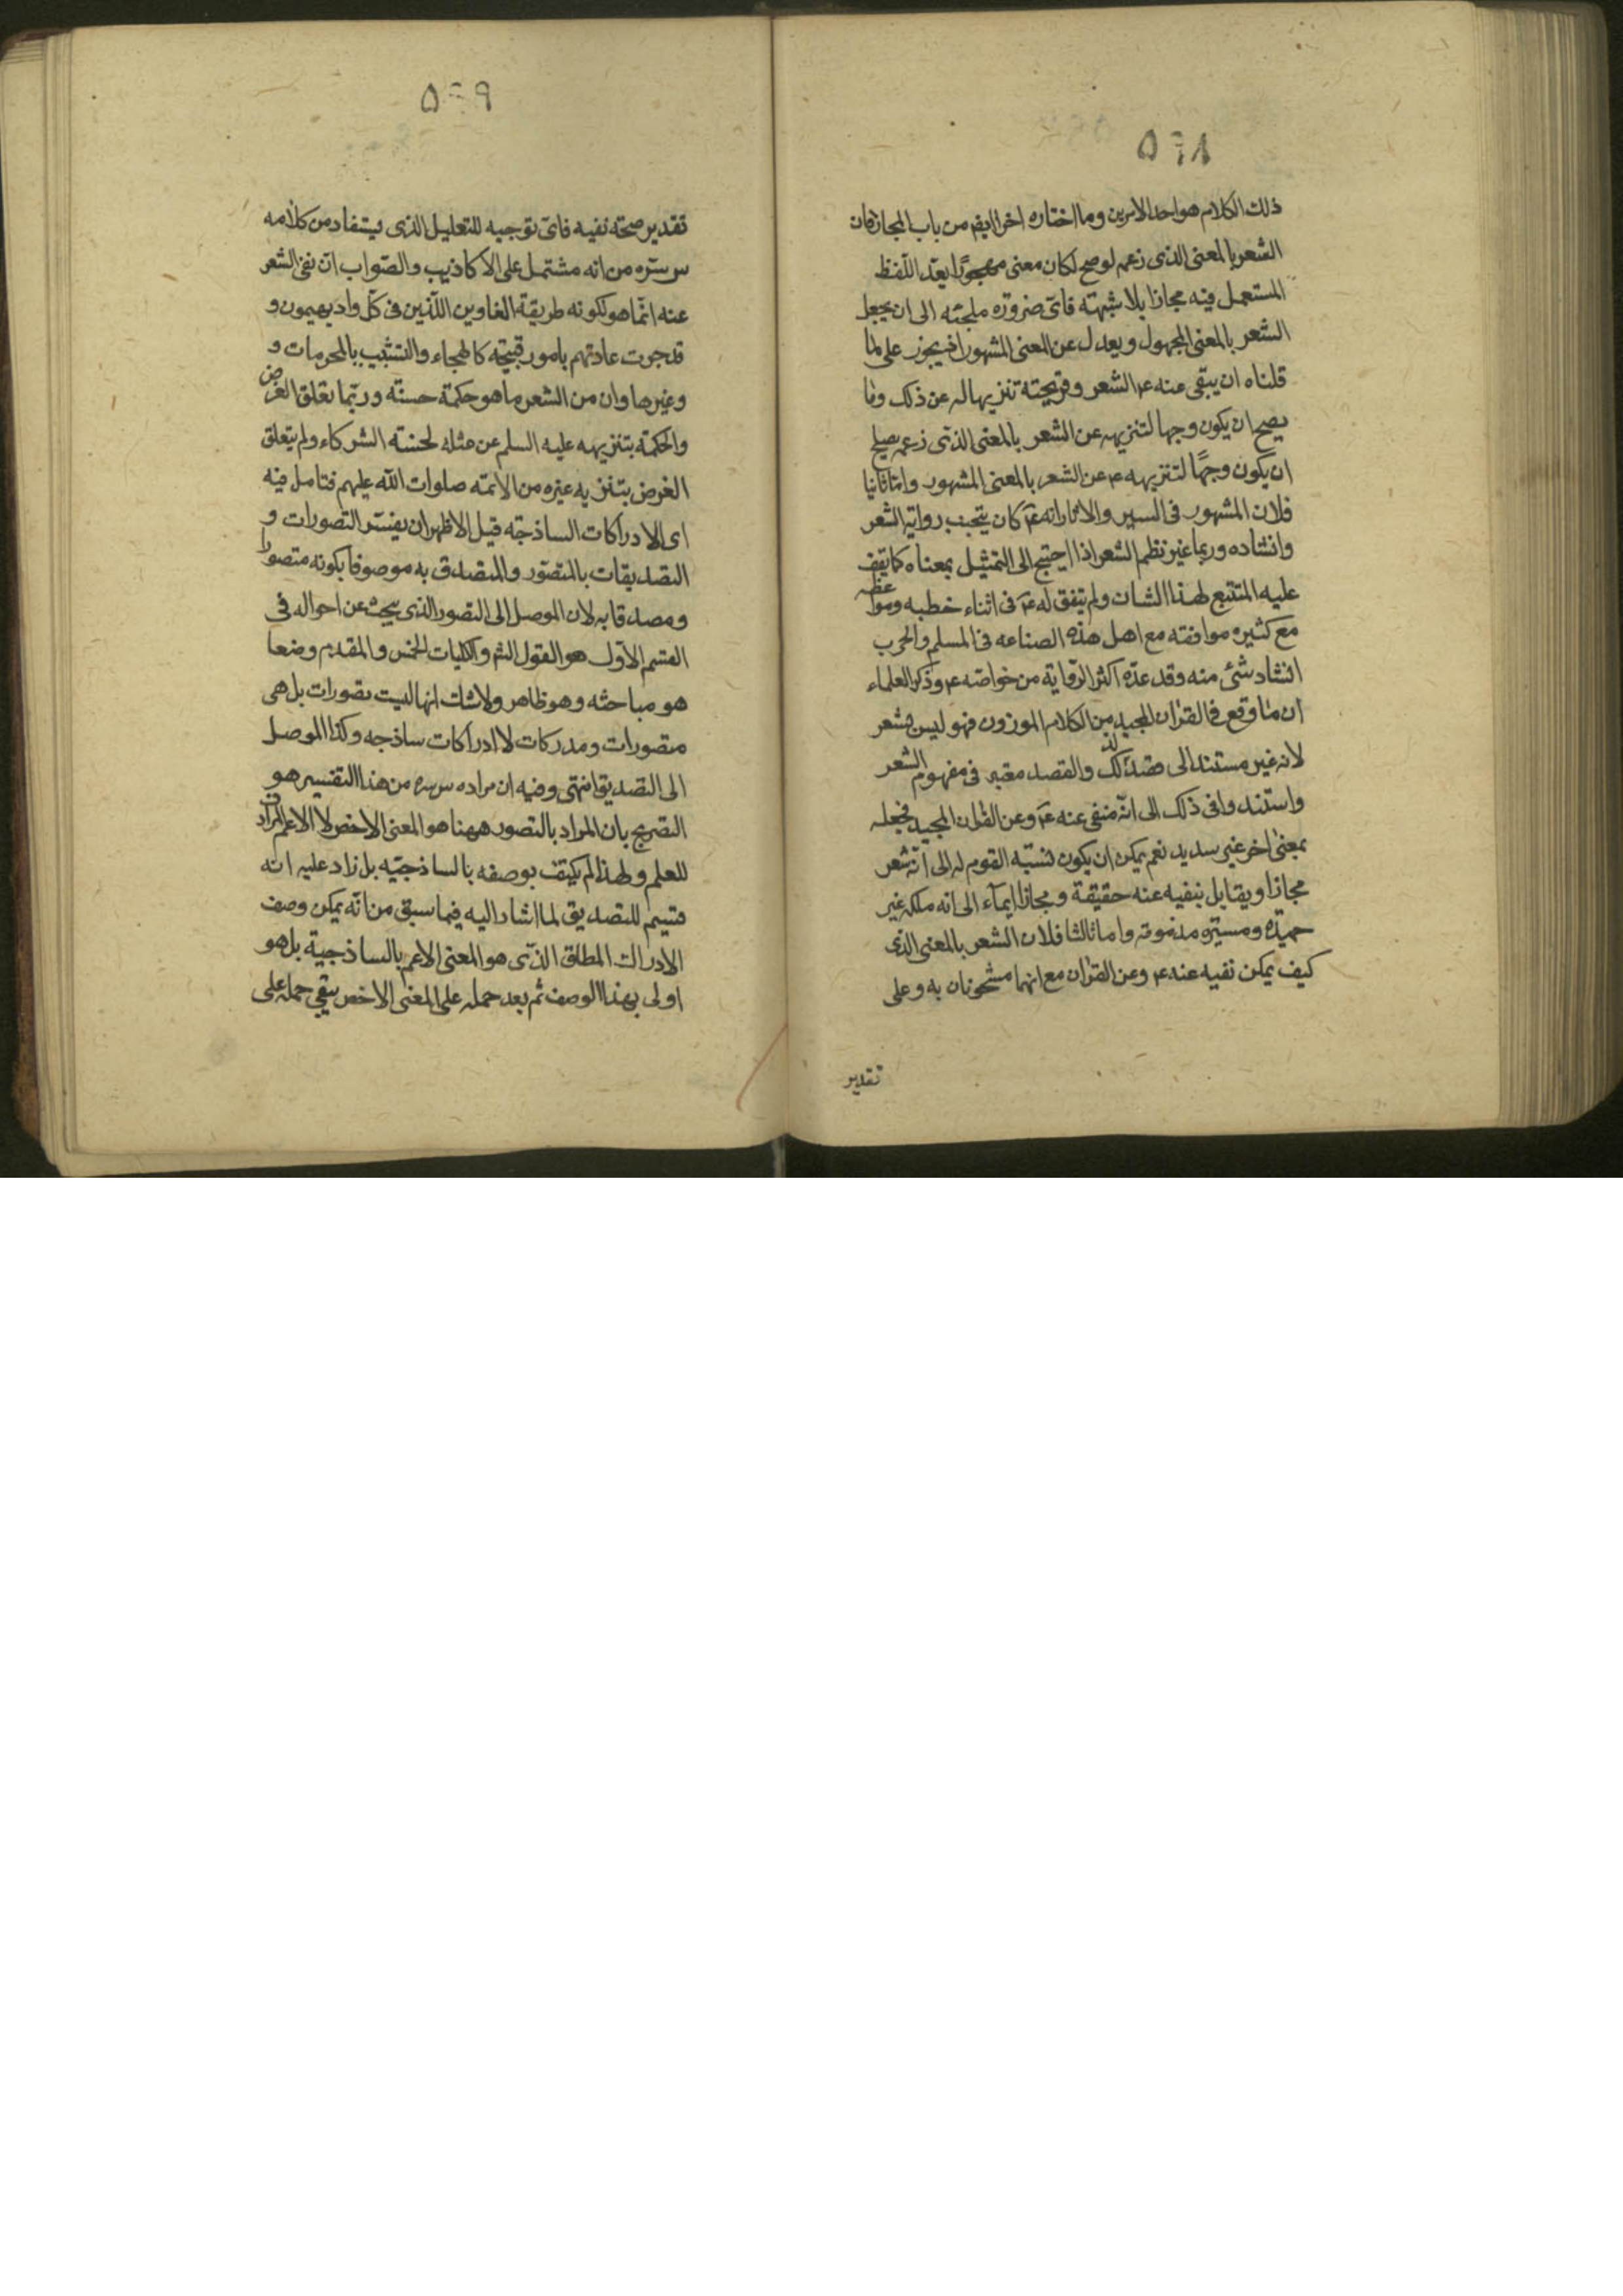 ٥٦٨
ذلك الكلام هو احد الامرين وما اختاره اخرا ايضم من باب المجاز فان
الشعر بالمعنى الذى زعم لو صح لكان معنى مهجورًا يعدّ اللّفظ
المستعمل فيه مجازا بلا شبهته فاىّ ضرورة ملجئه الى ان يجعل
الشعر بالمعنى المجهول ويعدل عن المعنى المشهور اذ يجوز على لما
قلناه ان يبقى عنه ع الشعر وقريحته تنزيها له عن ذلك وما
يصح ان يكون وجها لتنزيهه عن الشعر بالمعنى الذى زعمه يصلح
ان يكون وجهًا لتنزيهه ع عن الشعر بالمعنى المشهور واما ثانيا
فلان المشهور فى السير والاثار انه ع كان يتجنب رواية الشعر
وانشاده وربما غير نظم الشعر اذا احتيج الى التمثيل بمعناه كما يقف
عليه المتتبع لهذا الشان ولم يتفق له ع فى اثناء خطبه ومواعظه
مع كثيره موافقته مع اهل هذه الصناعه فى المسلم والحرب
انشاد شئ منه وقد عدّه اكثر الرّواية من خواصّه ع وذكر العلماء
ان ما وقع فى القران المجيد من الكلام الموزون فهو ليس بشعر
لانه غير مستند الى قصد لذلك والقصد معتبر فى مفهوم الشعر
واستند وافى ذلك الى انّه منفى عنه ع وعن القران المجيد فجعله
بمعنى اخر غير سديد نعم يمكن ان يكون نسبته القوم له الى انّه شعر
مجازا ويقابل بنفيه عنه حقيقة ومجازا ايماء الى انه ملكه غير
حميدة ومسيّره مذمومه واما ثالثا فلان الشعر بالمعنى الذى
كيف يمكن نفيه عنه ع وعن القران مع انهما مشحونان به وعلى
تقدير
٥٦٩
تقدير صحته نفيه فاىّ توجيه للتعليل الذى يستفاد من كلامه
س سرّه من انه مشتمل على الاكاذيب والصّواب انّ نفى الشعر
عنه انّما هو لكونه طريقة الغاوين اللّذين فى كلّ واد يهيمون و
قد جرت عادتهم بامور قبيحه كالهجاء والتشبيب بالمحرمات و
وغيرها وان من الشعر ما هو حكمة حسنّه وربّما تعلق الغرض
والحكمة بتنزيهه عليه السلم عن مثله لحسنته الشركاء ولم يتعلق
الغرض بتنزيه غيره من الائمّه صلوات اللّه عليهم فتامل فيه
اى الادراكات الساذجّه قيل الاظهر ان يفسّر التصورات و
التصديقات بالمتصّور والمصدق به موصوفا بكونه متصورا
ومصدقا به لان الموصل الى التصور الذى يبحث عن احواله فى
القسم الاوّل هو القول الشم والكليات الخمس والمقدم وضعا
هو مباحثه وهو ظاهر ولا شك انها ليست تصورات بل هى
متصورات ومدركات لا ادراكات ساذجه وكذا الموصل
الى التصديق انتهى وفيه ان مراده س سره من هذا التفسير هو
التصريح بان المراد بالتصور ههنا هو المعنى الاخص لا الاعم المرادف
للعلم ولهذا لم يكتف بوصفه بالساذجيّه بل زاد عليه انه
قسيم للتصديق لما اشار اليه فيما سبق من انّه يمكن وصف
الادراك المطلق الذّى هو المعنى الاعم بالساذجية بل هو
اولى بهذا الوصف ثم بعد حمله على المعنى الاخص يبقى حمله على